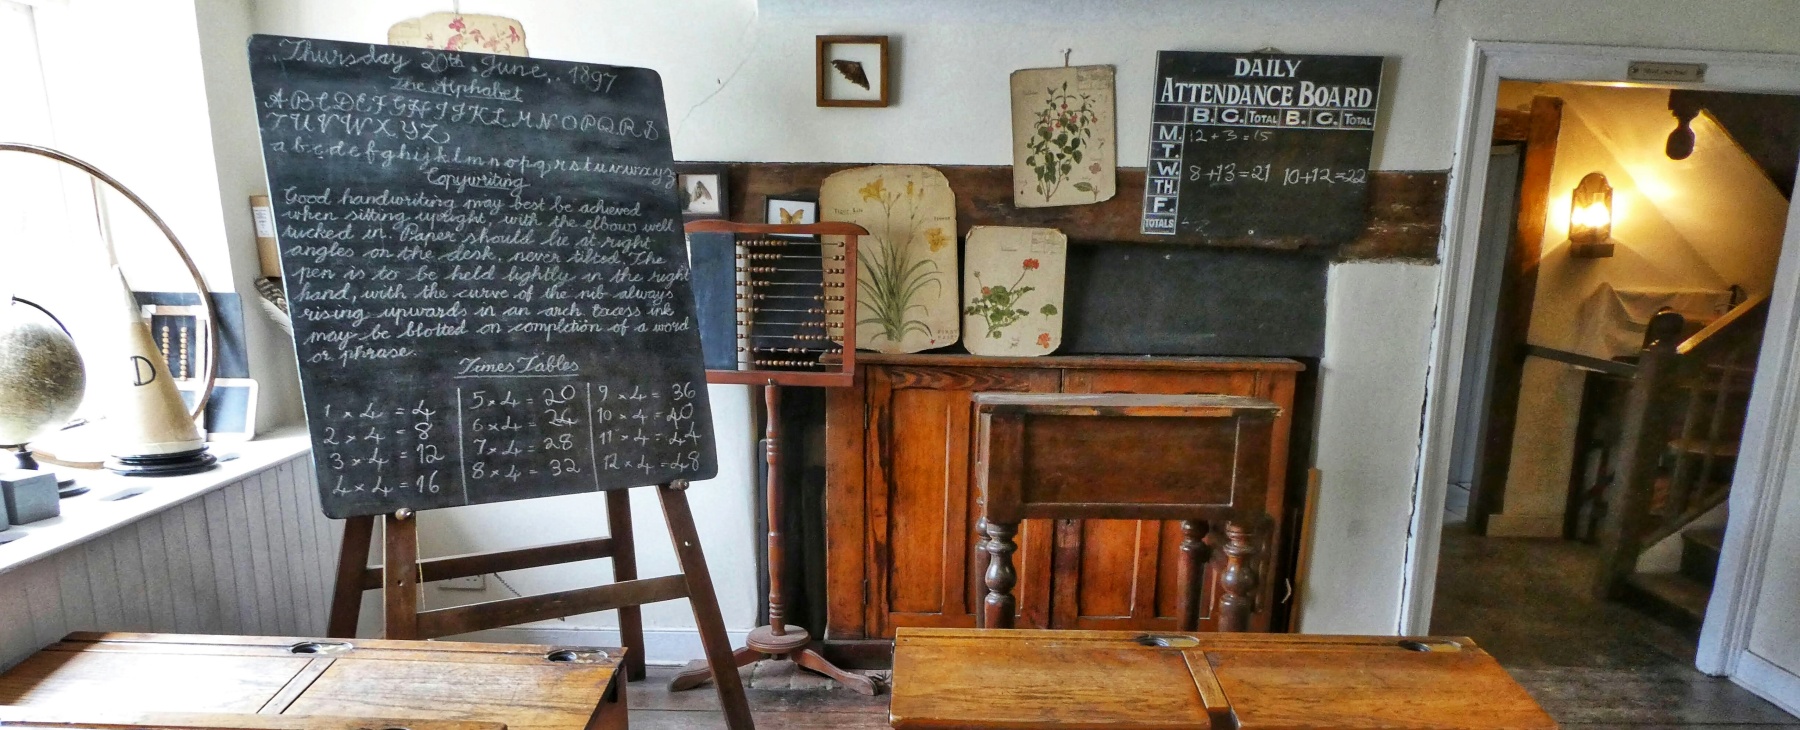 Thursday 20th June, 1897
The Alphabet
A B C D E F G H I J K L M N O P Q R S
T U V W X Y Z
a b c d e f g h i j k l m n o p q r s t u v w x y z
Copywriting
Good handwriting may best be achieved
when sitting upright, with the elbows well
tucked in. Paper should lie at right
angles on the desk, never tilted. The
pen is to be held lightly in the right
hand, with the curve of the nib always
rising upwards in an arch. Excess ink
may be blotted on completion of a word
or phrase.
Times Tables
1 × 4 = 4
2 × 4 = 8
3 × 4 = 12
4 × 4 = 16
5 × 4 = 20
6 × 4 = 24
7 × 4 = 28
8 × 4 = 32
9 × 4 = 36
10 × 4 = 40
11 × 4 = 44
12 × 4 = 48
D
DAILY
ATTENDANCE BOARD
B. G. TOTAL B. G. TOTAL
M. 12 + 3 = 15
T.
W. 8 + 13 = 21 10 + 12 = 22
TH.
F.
TOTALS